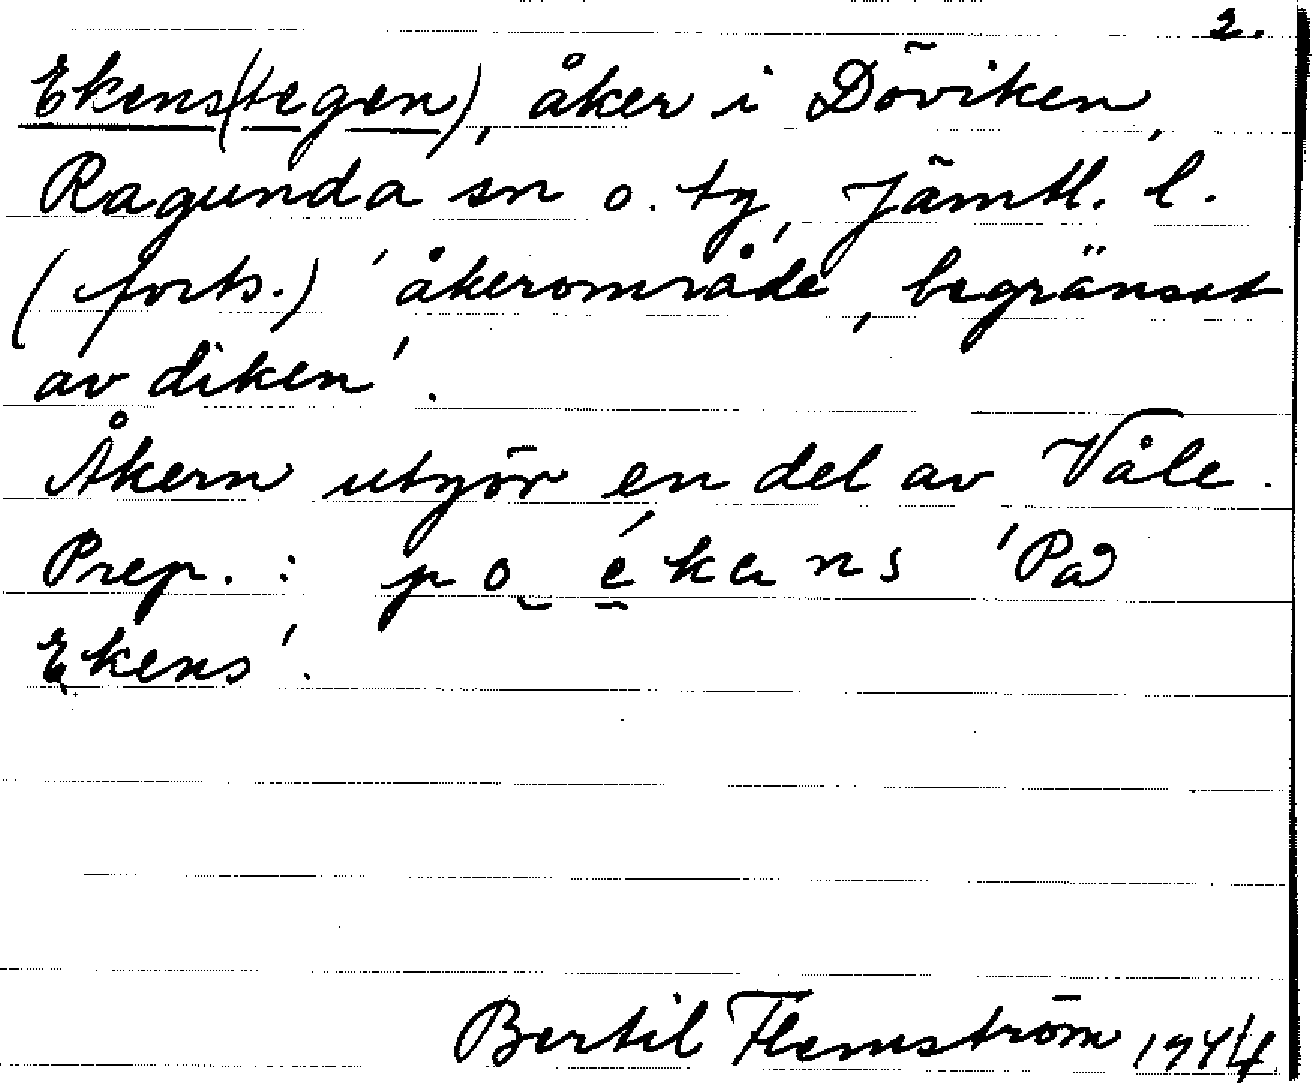 2.
Ekens(tegen), åker i Döviken,
Ragunda sn o. tg, Jämtl. l.
(forts.) 'åkerområde, begränsat
av diken'.
Åkern utgör en del av Våle.
Prep.: på ékens 'På
Ekens'.
Bertil Flemström 1944